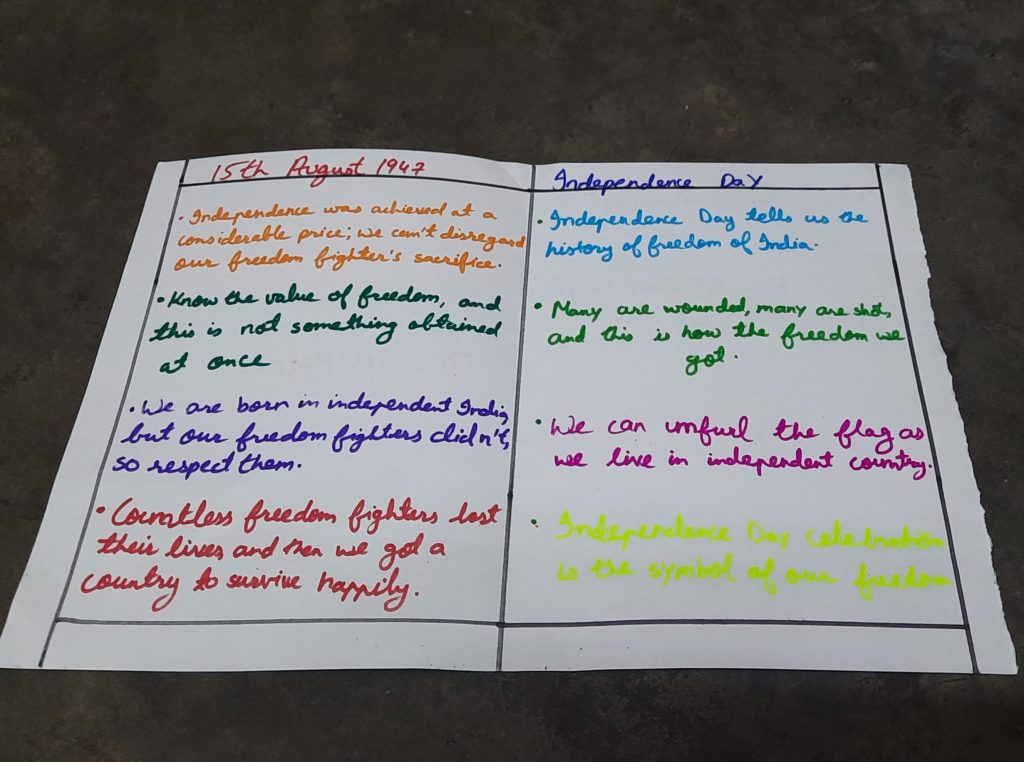 15th August 1947
• Independence was achieved at a
considerable price; we can't disregard
our freedom fighter's sacrifice.
• Know the value of freedom, and
this is not something obtained
at once
• We are born in independent India,
but our freedom fighters didn't,
so respect them.
• Countless freedom fighters lost
their lives, and then we got a
country to survive happily.
Independence Day
• Independence Day tells us the
history of freedom of India.
• Many are wounded, many are shot,
and this is how the freedom we
got.
• We can unfurl the flag as
we live in independent country.
• Independence Day celebration
is the symbol of our freedom